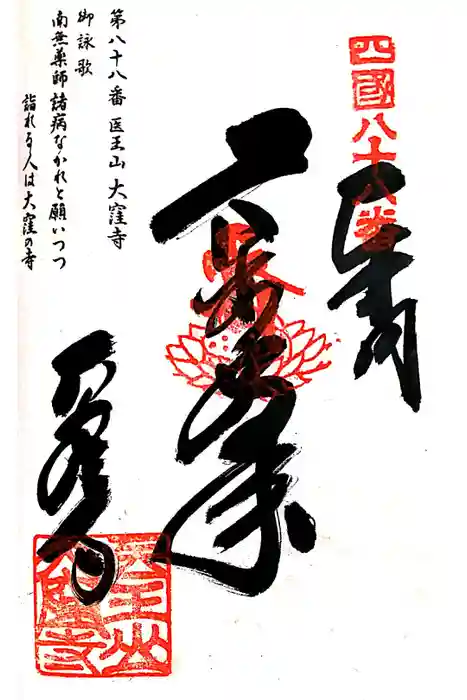 四國八十八番
奉納
大窪寺
医王山
大窪寺
第八十八番 医王山 大窪寺
御詠歌
南無薬師諸病なかれと願いつつ
詣れる人は大窪の寺